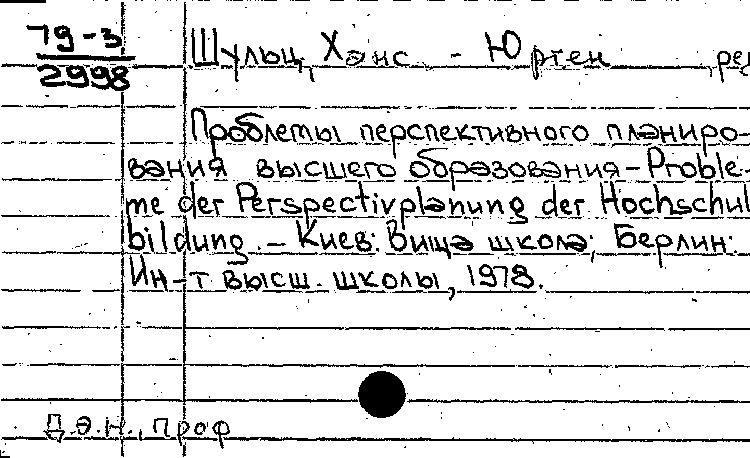 79-3
2998
Шульц, Хэнс - Юрген, ред
Проблемы перспективного планиро-
вания высшего образования - Proble-
me der Perspectivplanung der Hochschul
bildung. - Киев: Вища школа; Берлин:
Ин-т высш. школы, 1978.
Д.э.н., проф